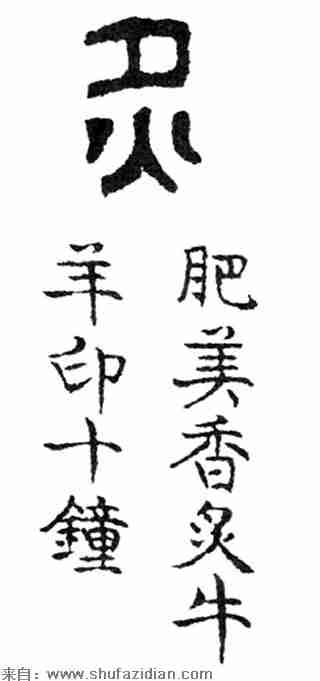 炙
肥美香炙牛
羊印十鐘
来自：www.shufazidian.com